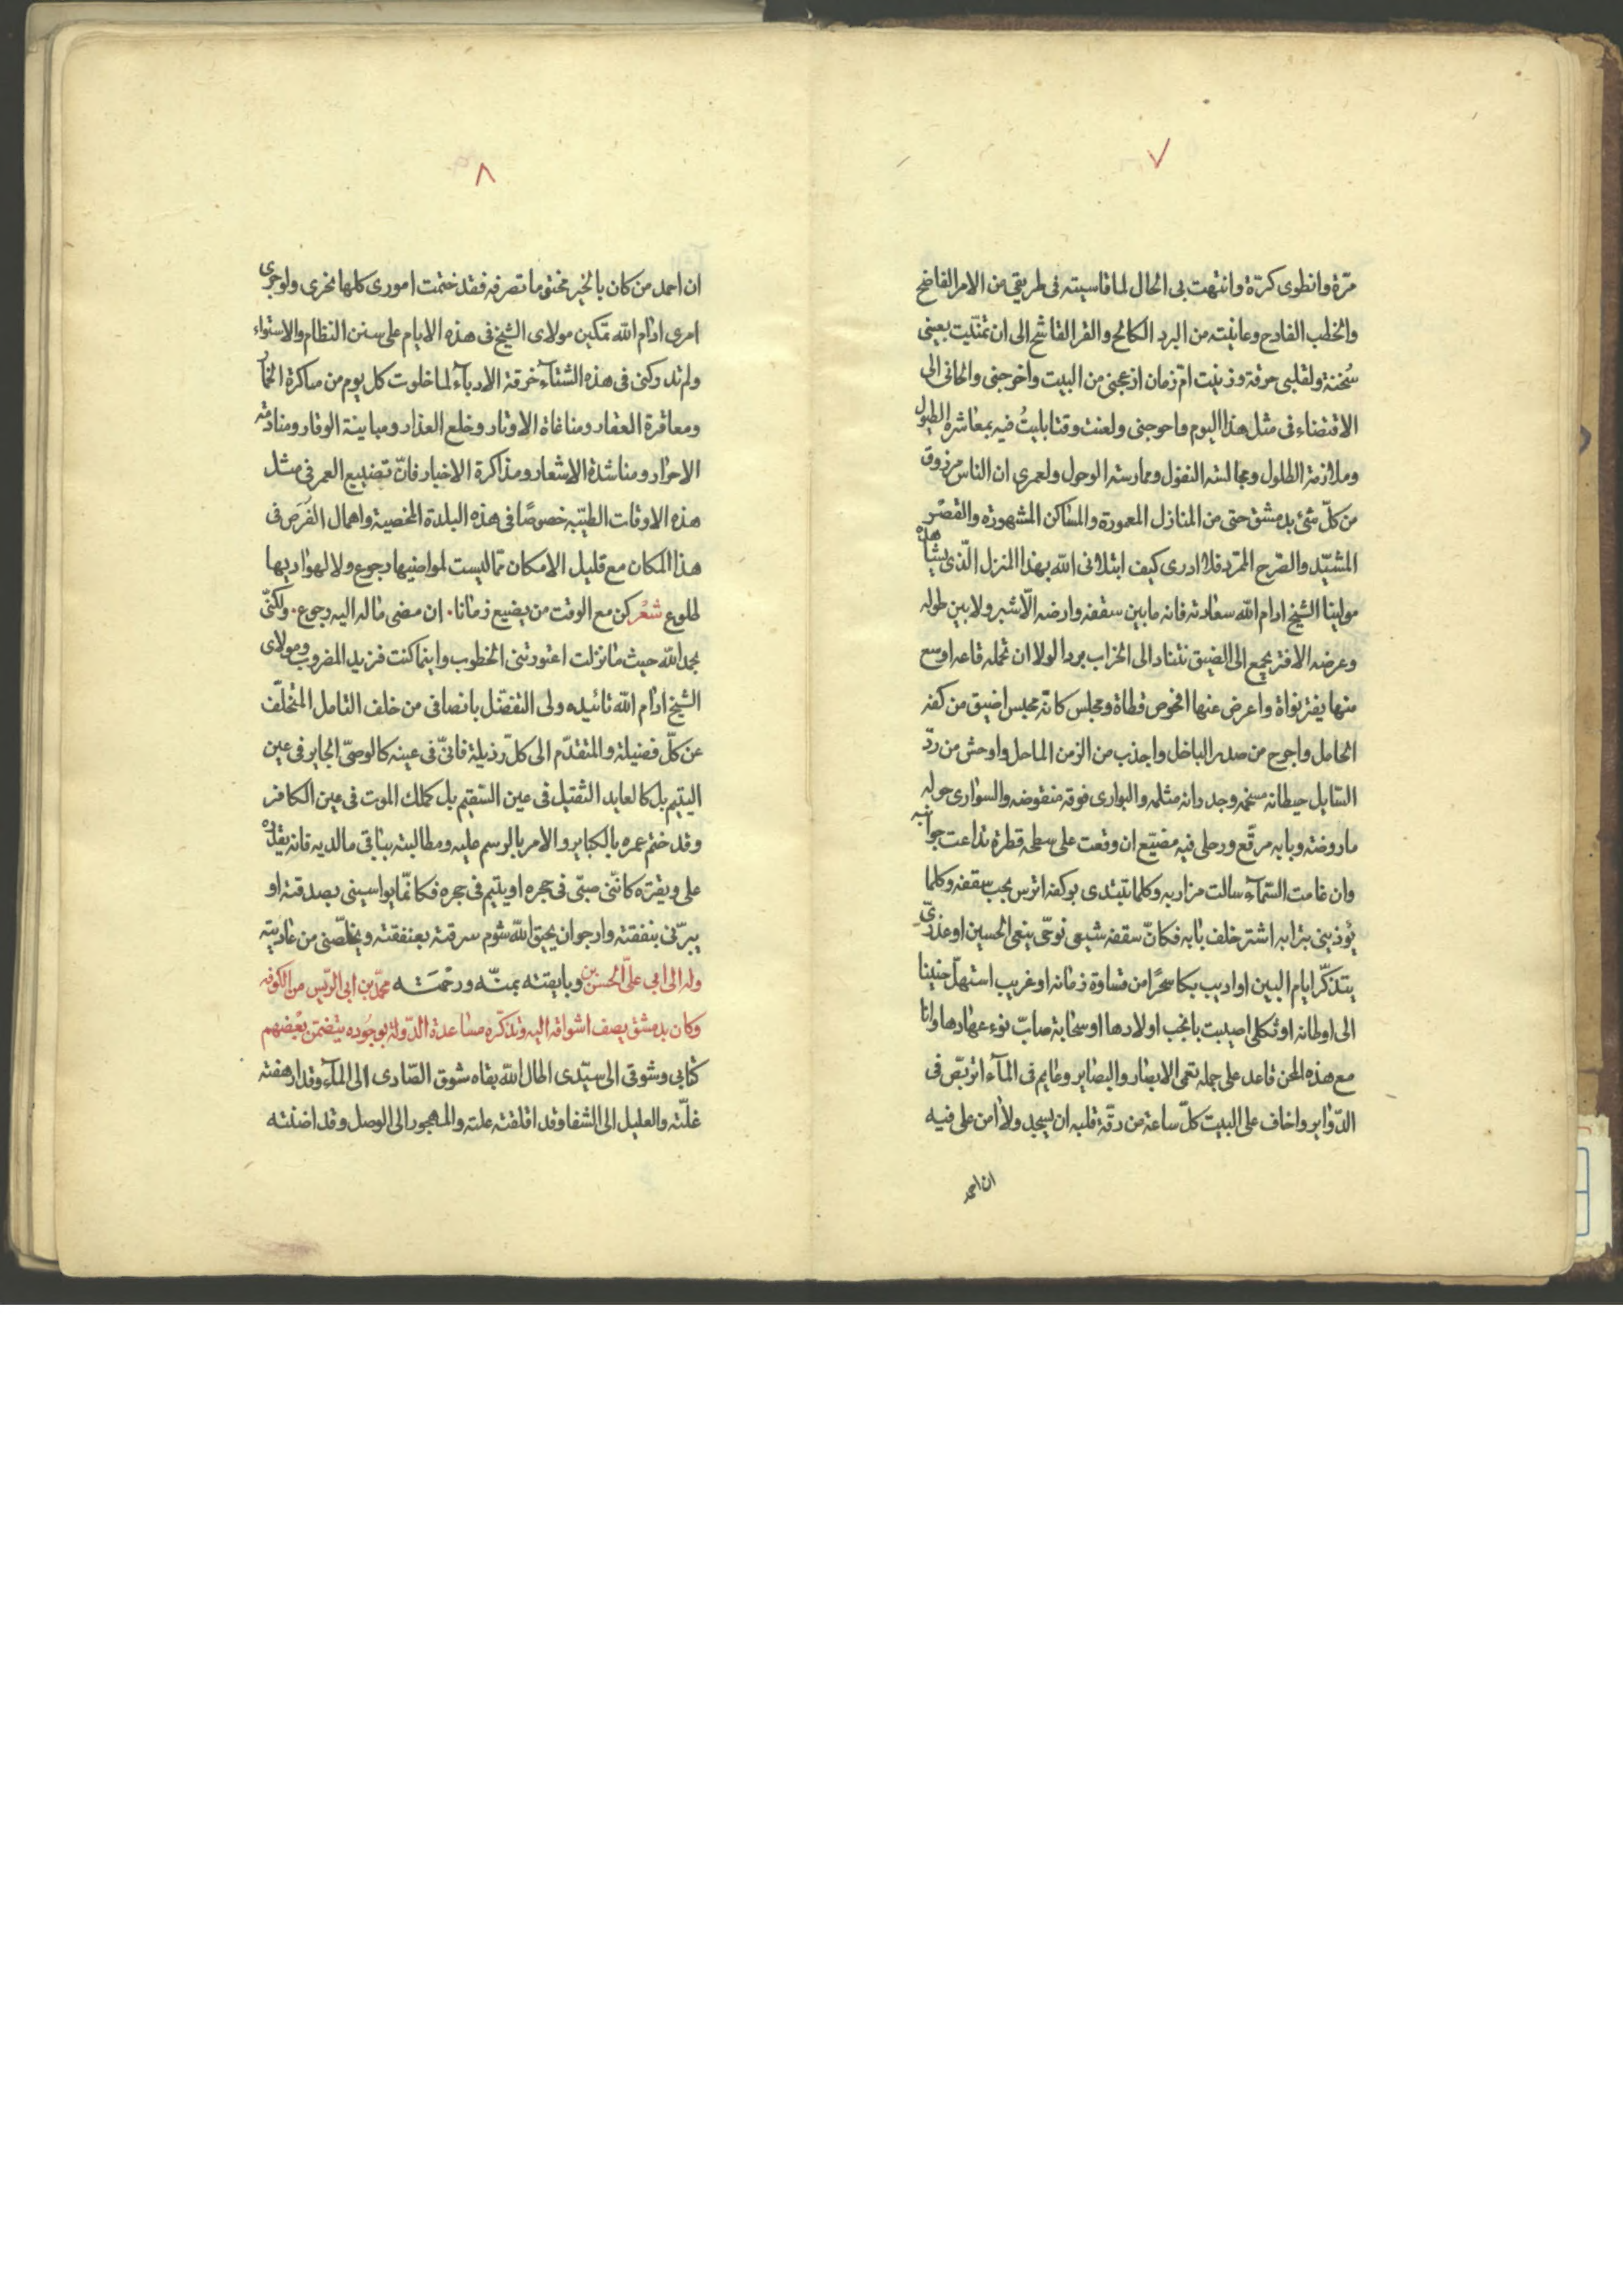 ٧
مرّة وانطوى كرّة وانتهت بى الحال لما قاسيته فى طريقى من الامر الفاضح
والخطب الفادح وعانيته من البرد الكالح والقر القاشح الى ان تمنّيت بعينى
سُخنة ولقلبى حرقة وزنيت امّ زمان ازعجنى من البيت واخرجنى والجانى الى
الاقتضاء فى مثل هذا اليوم واحوجنى ولعنت وقتا بليتُ فيه بمعاشرة الطبول
وملازمة الطلول ومجالسة النغول وممارسة الوحول ولعمرى ان الناس مرزوق
من كلّ شئ بدمشق حتى من المنازل المعمورة والمساكن المشهورة والقصر
المشيّد والصّرح الممّرد فلا ادرى كيف ابتلانى الله بهذا المنزل الّذى يشاهده
مولينا الشيخ ادام الله سعادته فانه ما بين سقفه وارضه الّا شبر ولا بين طوله
وعرضه الا فتر يجمع الى الضيق نتنا دالى الخراب بردا لولا ان نحله قاعه اوسع
منها بفتر نواة واعرض عنها افحوص قطاة ومجلس كانّه محبس اضيق من كفة
الحامل واجوح من صدر الباخل واجذب من الزمن الماحل واوحش من ردّ
السّايل حيطانه مسخمه وجدرانه مثلمه والبوارى فوقه منقوضه والسوارى حوله
ماروضته وبابه مرقّع ورحلى فيه مضيّع ان وقعت على سطحه قطرة تداعت جوانبه
وان غامت السّمآء سالت مزاريبه وكلما تبتدى بوكفه اترس بجب سقفه وكلما
يُوذينى بترابه اشتر خلف بابه فكانّ سقفه شيعى نوحّى ينعى الحسين او عذرىّ
يتذكّر ايام البين او اديب بكا سحرًا من قساوة زمانه او غريب استهلّ حنينا
الى اوطانه او ثكلى اصيبت بانجب اولادها او سحابة صابّ نوء عهادها وانا
مع هذه المحن قاعد على جمله تعمى الابصار والبصاير وعايم فى المآء اتربّص فى
الدّواير واخاف على البيت كلّ ساعة من رقّة قلبه ان يسجد ولا امن على فيه
ان احمد
٨
ان احمد من كان بالخير مختو ما تصرفه فقد ختمت امورى كلها بخرى ولو جرى
امرى ادام الله تمكين مولاى الشيخ فى هذه الايام على سنن النظام والاستواء
ولم تدركنى فى هذه الشتآء حرفة الادبآء لما خلوت كل يوم من مباكرة الخمار
ومعاقرة العقار ومناغاة الاوتار وخلع العذار ومباينة الوقار ومنادمة
الاحرار ومناشدة الاشعار ومذاكرة الاخبار فانّ تضييع العمر فى مثل
هذه الاوقات الطيّبه خصوصًا فى هذه البلدة المخصبة واهمال الفُرَص فى
هذا المكان مع قليل الامكان ممّا ليست لمواضيها رجوع ولا لهواديها
طلوع شعر كن مع الوقت من يضيع زمانا · ان مضى ما له اليه رجوع · ولكنّى
بحمد الله حيث ما نزلت اعتورتنى الخطوب واينما كنت فزيد المضروب ومولاى
الشيخ ادام الله تائيده ولى التفضّل بانصافى من خلف التامل المتخلّف
عن كلّ فضيلة والمتقدّم الى كلّ رذيلة فانّى فى عينه كالوصىّ الجاير فى عين
اليتيم بل كالعايد الثقيل فى عين السّقيم بل كملك الموت فى عين الكافر
وقد ختم عمره بالكباير والامر بالرسم عليه ومطالبته بباقى مالديه فانه يقلّده
على ويقتره كانّنى صبّى فى حجره او يتيم فى حجره فكانّما يواسينى بصدقته او
يبرّنى بنفقته وارجو ان يحيق الله شوم سرقته بعنفقته ويخلّصنى من عاديته
وبايقته بمنّه ورحْمَته وله الى ابى علىّ الحسن بن محمّد بن ابى الريّس من الكوفه
وكان بدمشق يصف اشواقه اليه وتذكّره مساعدة الدّولة بوجُوده يتضمّن بعْضهم
كتابى وشوقى الى سيّدى اطال الله بقاه شوق الصّادى الى المآء وقد ارهفته
غلّته والعليل الى الشفا وقد اقلقته علته والمهجور الى الوصل وقد اضنته